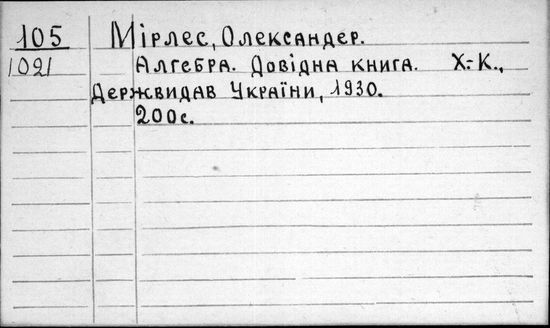 105 Мірлес, Олександер.
1021 Алгебра. Довідна книга. Х.-К.,
Держвидав України, 1930.
200с.